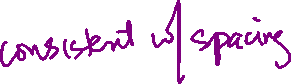 consistent w/ spacing